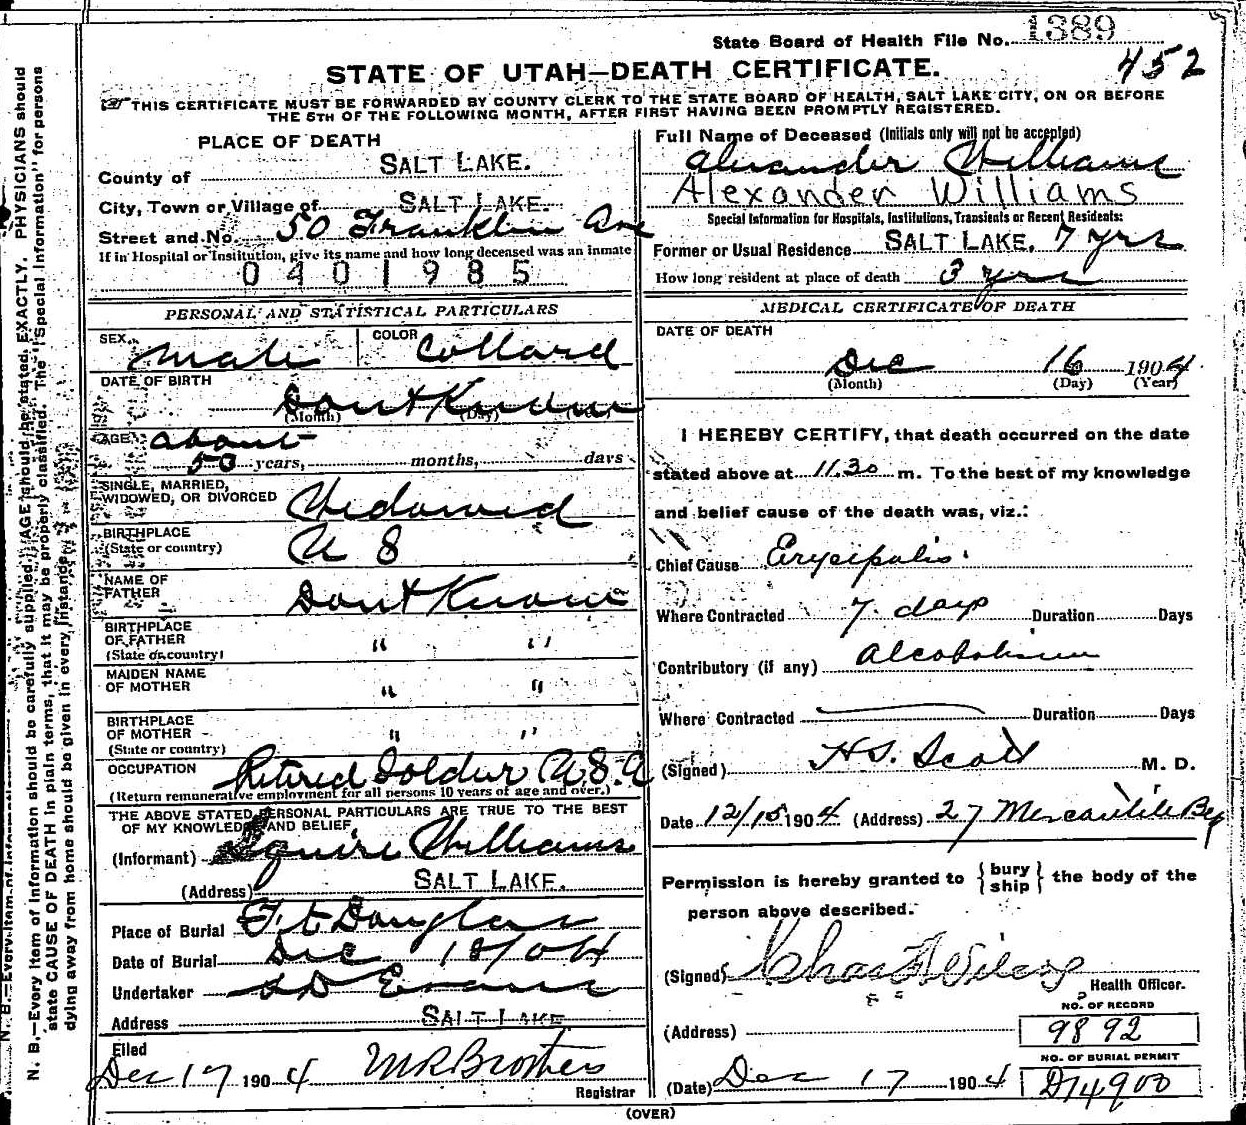 State Board of Health File No. 1389
452
STATE OF UTAH—DEATH CERTIFICATE.
THIS CERTIFICATE MUST BE FORWARDED BY COUNTY CLERK TO THE STATE BOARD OF HEALTH, SALT LAKE CITY, ON OR BEFORE
THE 5TH OF THE FOLLOWING MONTH, AFTER FIRST HAVING BEEN PROMPTLY REGISTERED.
PLACE OF DEATH
County of SALT LAKE.
City, Town or Village of SALT LAKE.
Street and No. 50 Franklin Ave
If in Hospital or Institution, give its name and how long deceased was an inmate
0401985
Full Name of Deceased (Initials only will not be accepted)
Alexander Williams
Alexander Williams
Special Information for Hospitals, Institutions, Transients or Recent Residents:
Former or Usual Residence SALT LAKE. 7 yrs
How long resident at place of death 3 yrs
PERSONAL AND STATISTICAL PARTICULARS
SEX Male
COLOR Collard
DATE OF BIRTH Dont Know
(Month) (Day)
AGE about
50 years, months, days
SINGLE, MARRIED,
WIDOWED, OR DIVORCED Widowed
BIRTHPLACE
(State or country) U S
NAME OF
FATHER Dont Know
BIRTHPLACE
OF FATHER
(State or country) " "
MAIDEN NAME
OF MOTHER " "
BIRTHPLACE
OF MOTHER
(State or country) " "
OCCUPATION Retired Soldier U.S.A
(Return remunerative employment for all persons 10 years of age and over.)
THE ABOVE STATED PERSONAL PARTICULARS ARE TRUE TO THE BEST
OF MY KNOWLEDGE AND BELIEF
(Informant) Squire Williams
(Address) SALT LAKE.
Place of Burial Ft Douglas
Date of Burial Dec 18/04
Undertaker S D Evans
Address SALT LAKE
Filed
Dec 17 1904 M R Brothers
Registrar
MEDICAL CERTIFICATE OF DEATH
DATE OF DEATH
Dec 16 1904
(Month) (Day) (Year)
I HEREBY CERTIFY, that death occurred on the date
stated above at 11.30 m. To the best of my knowledge
and belief cause of the death was, viz.:
Chief Cause Erycipalis
Where Contracted 7 days Duration Days
Contributory (if any) Alcoholism
Where Contracted Duration Days
(Signed) H S. Scott M. D.
Date 12/15 1904 (Address) 27 Mercantile Blg
Permission is hereby granted to { bury ship } the body of the
person above described.
(Signed) Chas F Wilcox
Health Officer.
(Address)
NO. OF RECORD
9892
NO. OF BURIAL PERMIT
D14900
(Date) Dec 17 1904
(OVER)
N. B.—Every item of information should be carefully supplied. AGE should be stated EXACTLY. PHYSICIANS should
state CAUSE OF DEATH in plain terms, that it may be properly classified. The "Special Information" for persons
dying away from home should be given in every instance.